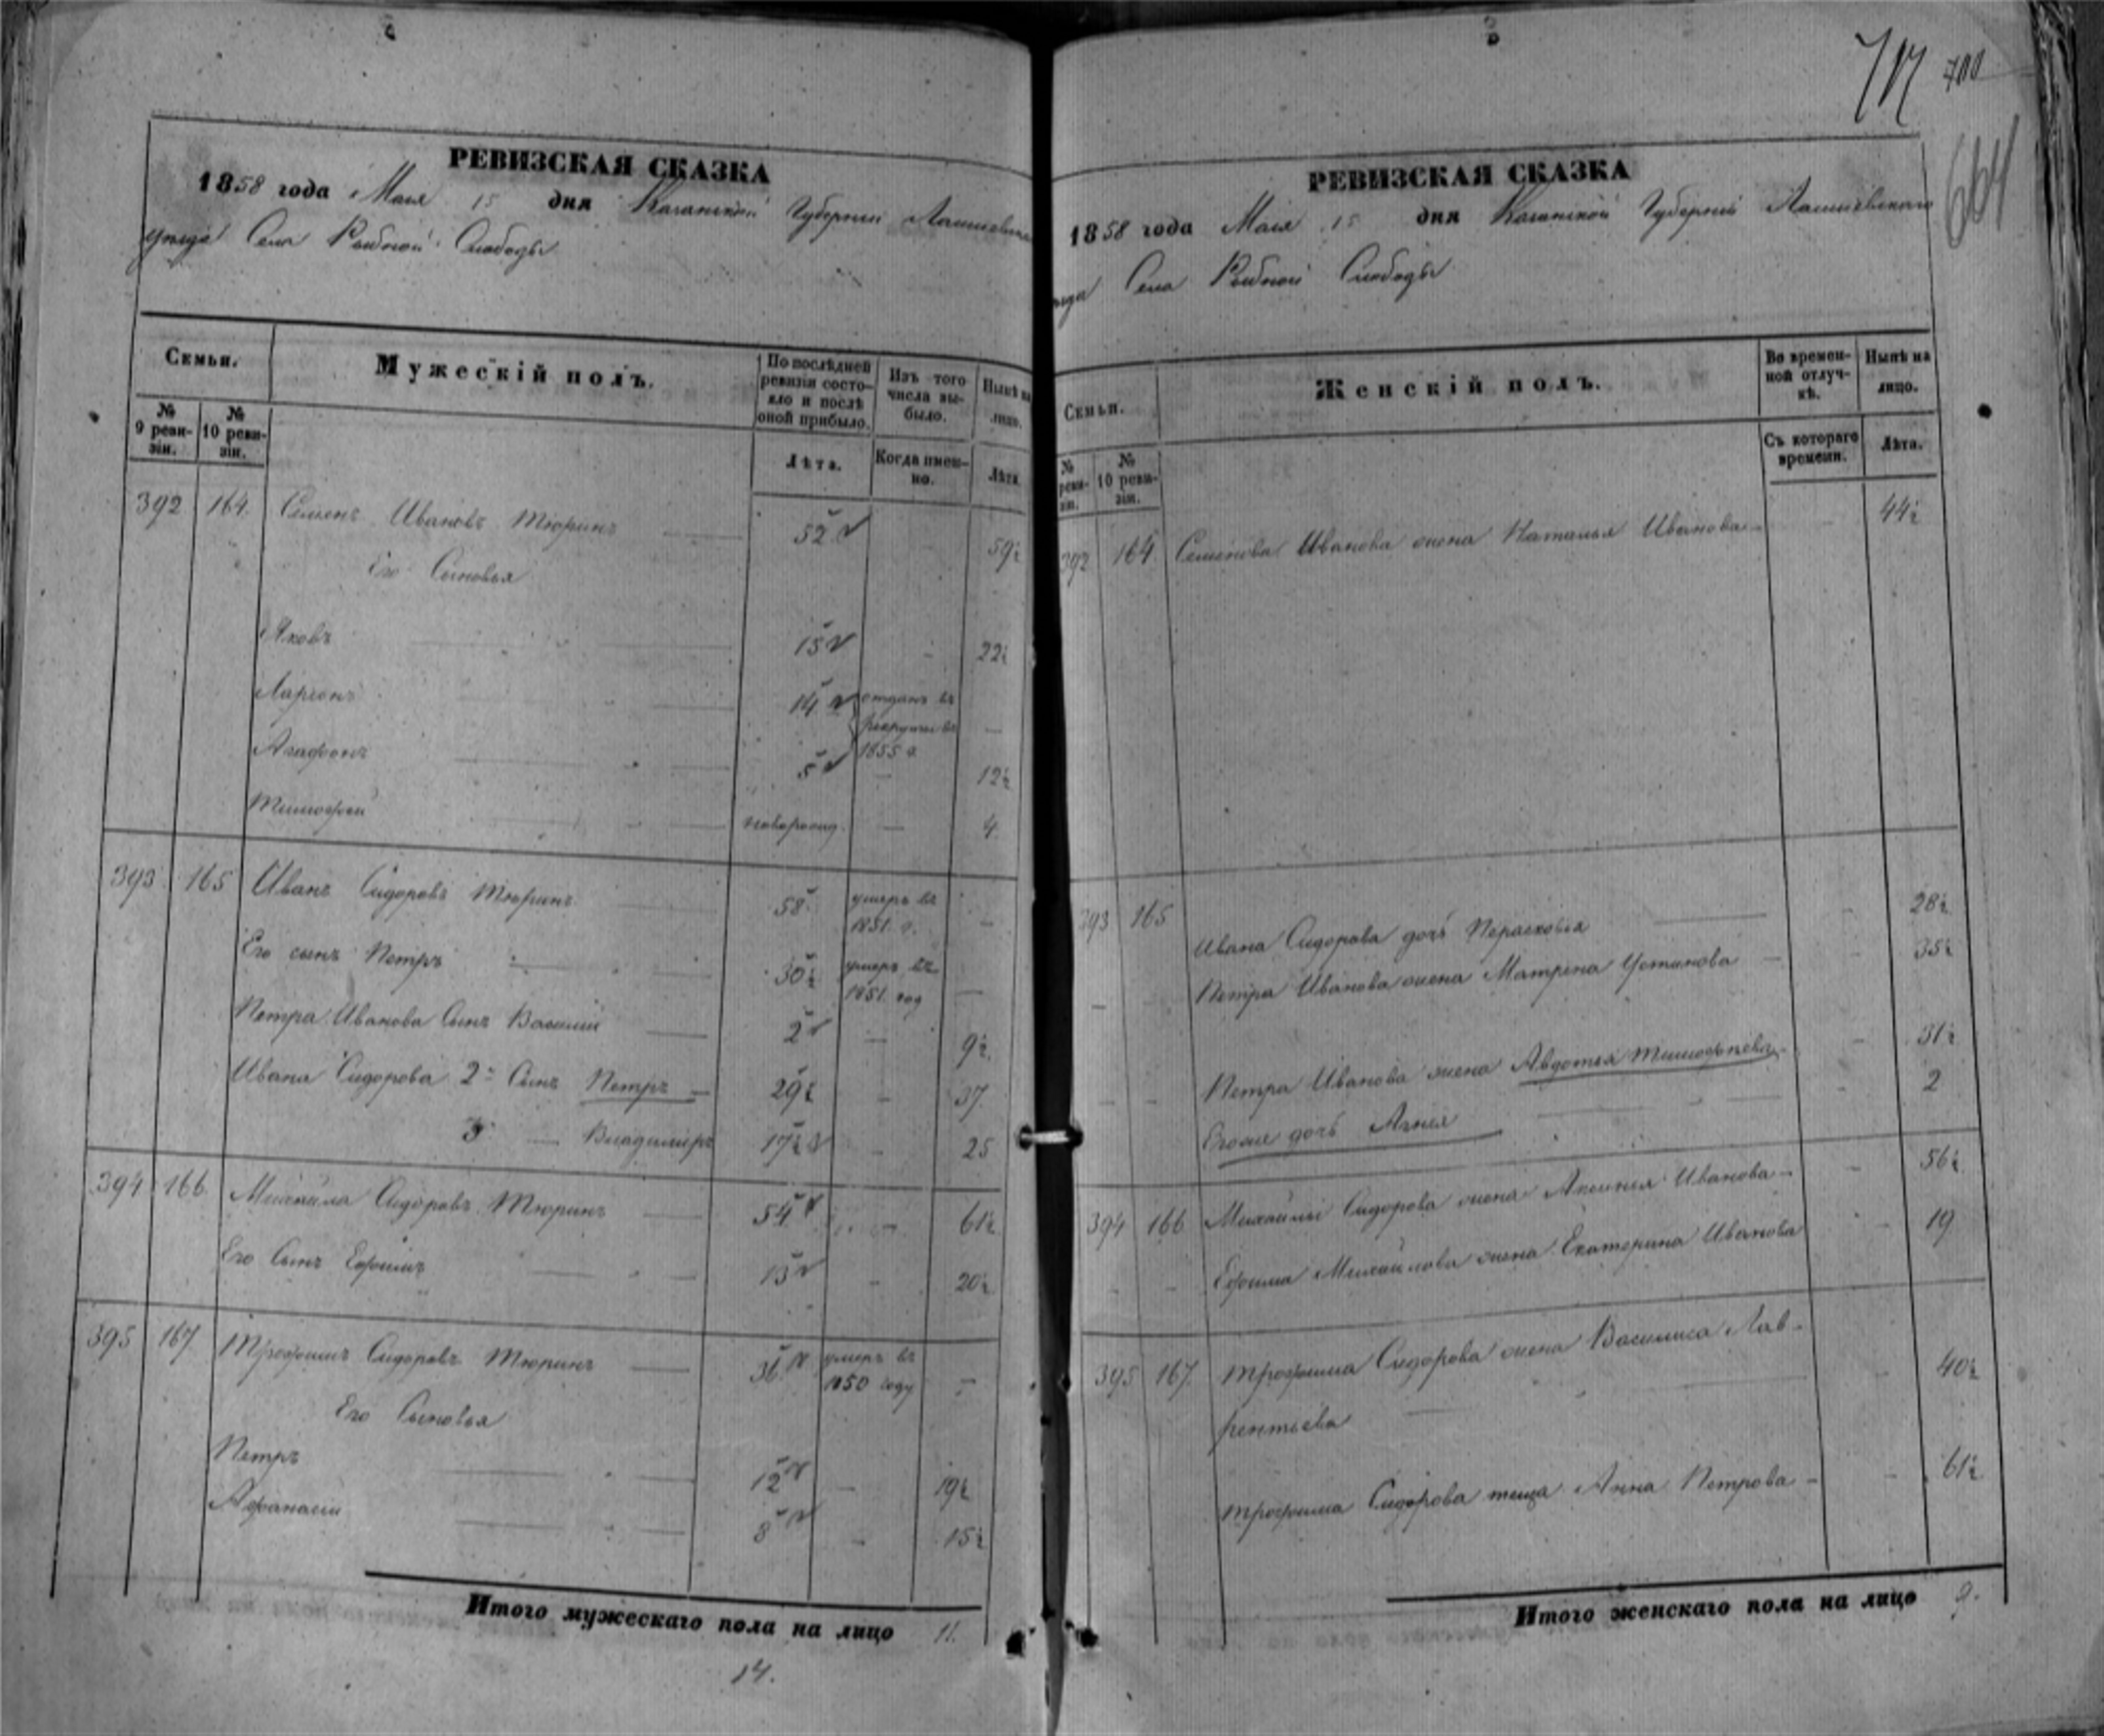 РЕВИЗСКАЯ СКАЗКА
1858 года Мая 15 дня Казанской Губернии Лаишевска
уезда Села Рыбной Слободы
Семьи.
Мужескій полъ.
По послѣдней ревизіи состояло и послѣ оной прибыло.
Изъ того числа выбыло.
Нынѣ на лицо.
№ 9 ревизіи.
№ 10 ревизіи.
Лѣта.
Когда именно.
Лѣта
392 164. Семенъ Ивановъ Тюринъ 52 59½
Его Сыновья
Яковъ 15 22½
Ларионъ 14 отданъ въ рекруты въ 1855 г. —
Агафонъ 5 — 12½
Тимофей новорожд. — 4.
393 165 Иванъ Сидоровъ Тюринъ 58. умеръ въ 1851. г. —
Его сынъ Петръ 30½ умеръ въ 1851. год —
Петра Иванова Сынъ Василий 2 — 9½.
Ивана Сидорова 2й Сынъ Петръ — 29½ — 37.
3 — Владимиръ 17½ — 25
394 166. Михайла Сидоровъ Тюринъ 54 — 61½
Его Сынъ Ефимъ 13 — 20½
395 167. Трофимъ Сидоровъ Тюринъ 36 умеръ въ 1850 году —
Его Сыновья
Петръ 12 — 19½
Афанасий 8 — 15½
Итого мужескаго пола на лицо 11.
14.
717 700
664
РЕВИЗСКАЯ СКАЗКА
1858 года Мая 15 дня Казанской Губерний Лаишевскаго
уезда Села Рыбной Слободы
Семьи.
Женскій полъ.
Во временной отлучкѣ.
Нынѣ на лицо.
№ реви-зіи.
№ 10 ревизіи.
Съ котораго времени.
Лѣта.
392 164 Семенова Иванова жена Наталья Иванова — 44½
393 165 Ивана Сидорова дочь Парасковья — 28½
Петра Иванова жена Матрена Устинова — 35½
Петра Иванова жена Авдотья Тимофеева — 31½
Егоже дочь Агнея 2
394 166 Михайлы Сидорова жена Аксинья Иванова — 56½
Ефима Михайлова жена Екатерина Иванова — 19
395 167. Трофима Сидорова жена Василиса Лав-
рентьева — 40½
Трофима Сидорова теща Анна Петрова — 61½
Итого женскаго пола на лицо 9.